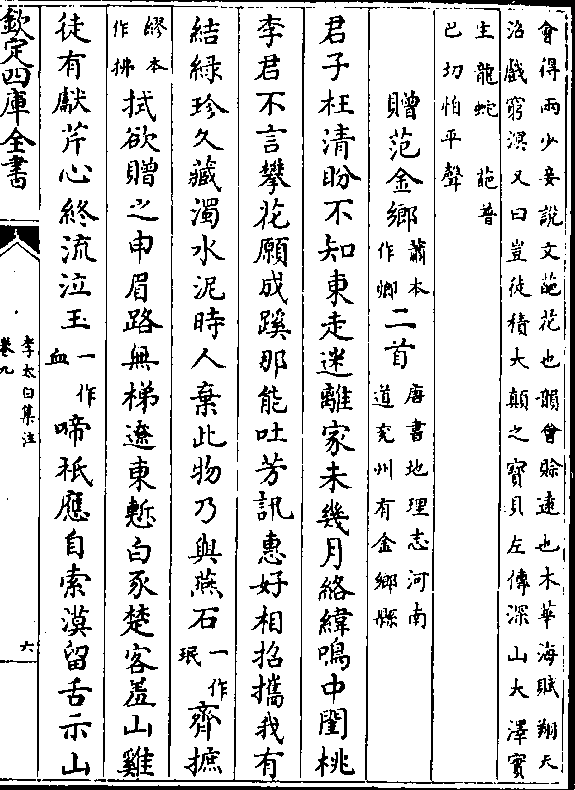 會得兩少妾說文葩花也韻會賒遠也木華海賦翔天
沼戲窮溟又曰豈徒積大顛之寶貝左傳深山大澤實
生龍蛇　葩普
巴切怕平聲
贈范金鄉蕭本作卿二首唐書地理志河南道兗州有金鄉縣
君子枉清盼不知東走迷離家未幾月絡緯鳴中閨桃
李君不言攀花願成蹊那能吐芳訊惠好相招攜我有
結緑珍久藏濁水泥時人棄此物乃與燕石一作珉齊摭
繆本作拂拭欲贈之申眉路無梯遼東慙白豕楚客羞山雞
徒有獻芹心終流泣玉一作血啼祇應自索漠留舌示山
欽定四庫全書
李太白集注
卷九
六